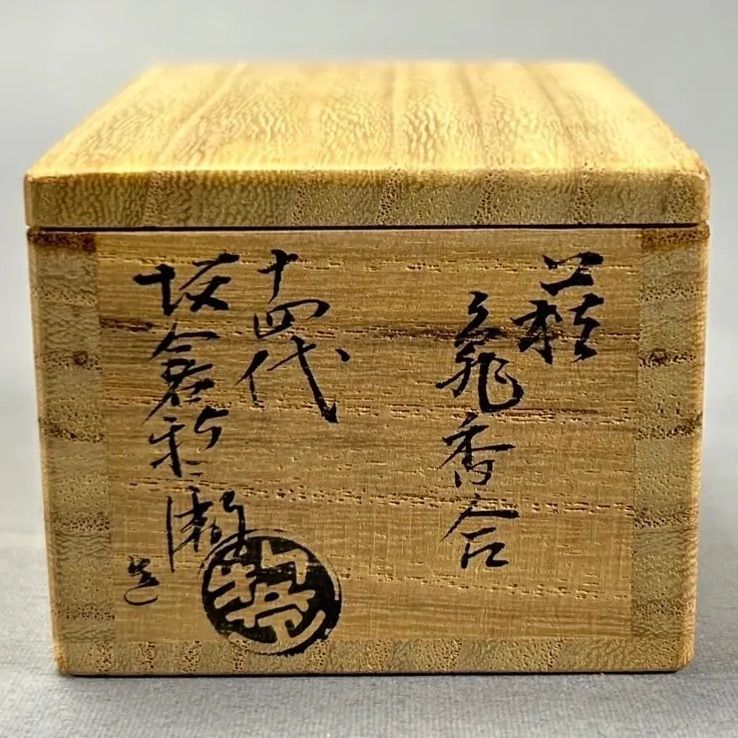 萩
香合
十四代
坂倉新兵衛
造